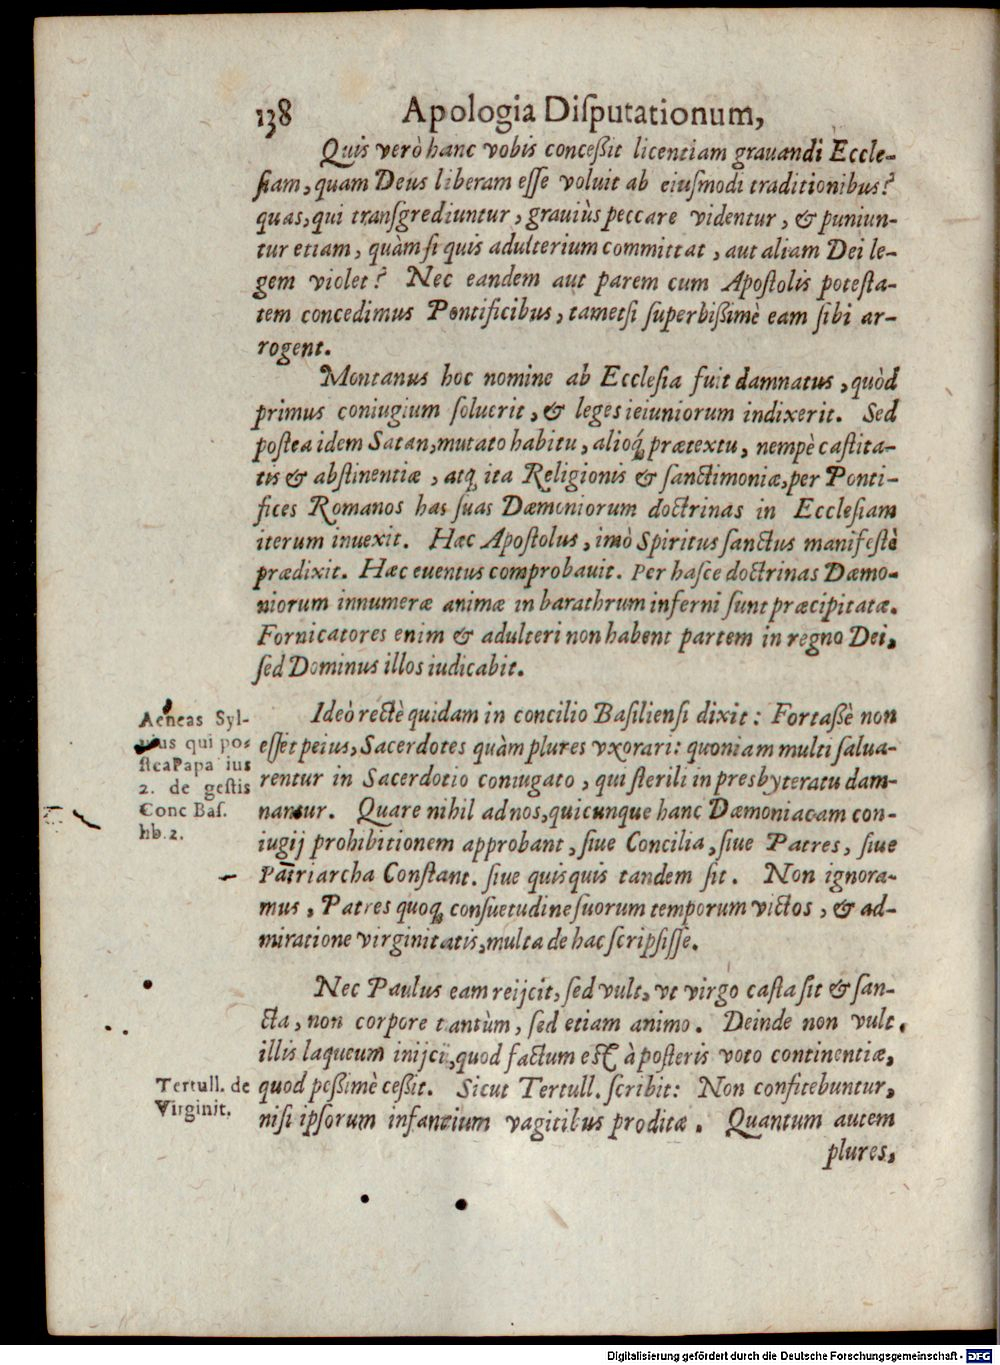 138 Apologia Disputationum,
Quis verò hanc vobis conceßit licentiam grauandi Eccle-
siam, quam Deus liberam esse voluit ab eiusmodi traditionibus?
quas, qui transgrediuntur, grauiùs peccare videntur, & puniun-
tur etiam, quàm si quis adulterium committat, aut aliam Dei le-
gem violet? Nec eandem aut parem cum Apostolis potesta-
tem concedimus Pontificibus, tametsi superbißimè eam sibi ar-
rogent.
Montanus hoc nomine ab Ecclesia fuit damnatus, quòd
primus coniugium soluerit, & leges ieiuniorum indixerit. Sed
postea idem Satan, mutato habitu, alioq́; prætextu, nempè castita-
tis & abstinentiæ, atq; ita Religionis & sanctimoniæ, per Ponti-
fices Romanos has suas Dæmoniorum doctrinas in Ecclesiam
iterum inuexit. Hæc Apostolus, imò Spiritus sanctus manifestè
prædixit. Hæc euentus comprobauit. Per hasce doctrinas Dæmo-
niorum innumeræ animæ in barathrum inferni sunt præcipitatæ.
Fornicatores enim & adulteri non habent partem in regno Dei,
sed Dominus illos iudicabit.
Ideò rectè quidam in concilio Basiliensi dixit: Fortaßè non
esset peius, Sacerdotes quàm plures vxorari: quoniam multi salua-
rentur in Sacerdotio coniugato, qui sterili in presbyteratu dam-
nantur. Quare nihil ad nos, quicunque hanc Dæmoniacam con-
iugij prohibitionem approbant, siue Concilia, siue Patres, siue
Patriarcha Constant. siue quisquis tandem sit. Non ignora-
mus, Patres quoq; consuetudine suorum temporum victos, & ad-
miratione virginitatis, multa de hac scripsisse.
Aeneas Syl-
uius qui pos
stea Papa ius
2. de gestis
Conc Bas.
lib. 2.
Nec Paulus eam reijcit, sed vult, vt virgo casta sit & san-
cta, non corpore tantùm, sed etiam animo. Deinde non vult,
illis laqueum inijci, quod factum est à posteris voto continentiæ,
quod peßimè ceßit. Sicut Tertull. scribit: Non confitebuntur,
nisi ipsorum infantium vagitibus proditæ. Quantum autem
Tertull. de
Virginit.
plures,
Digitalisierung gefördert durch die Deutsche Forschungsgemeinschaft - DFG